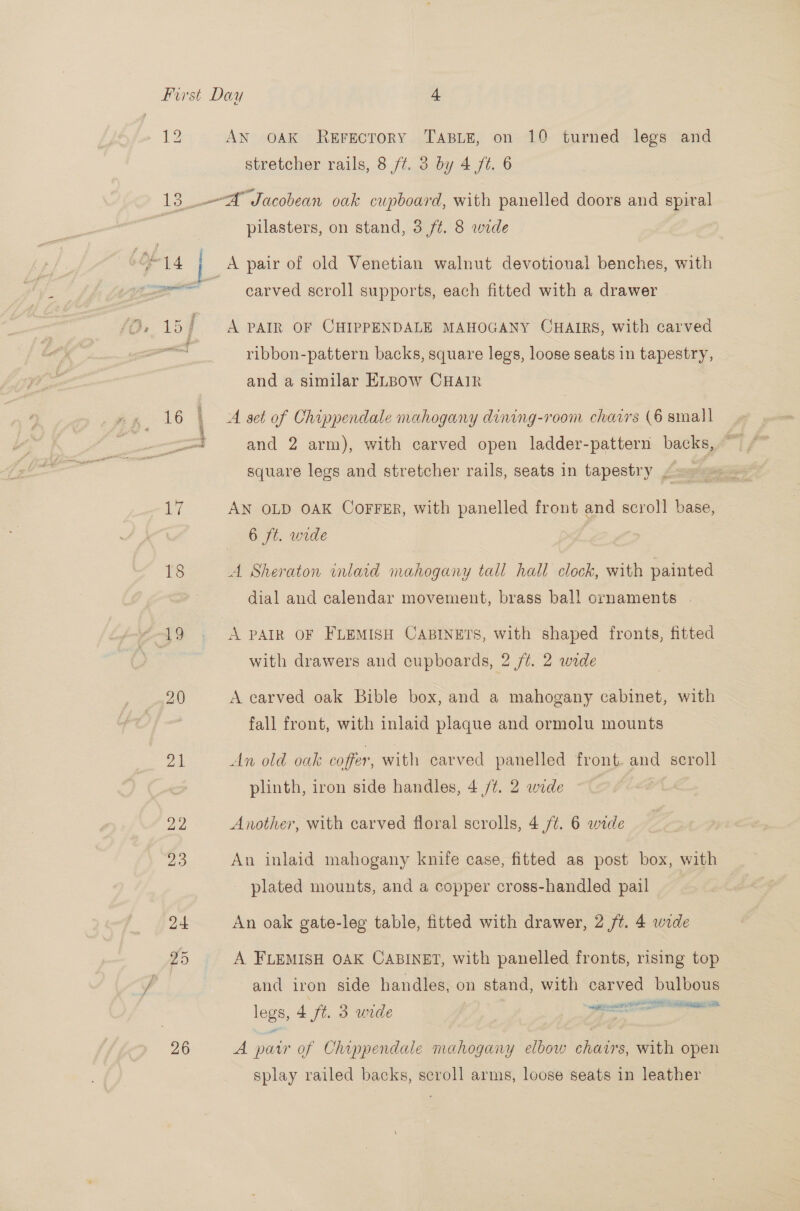 First Day 4
12 AN OAK REFECTORY TABLE, on 10 turned legs and
stretcher rails, 8 ft. 3 by 4 ft. 6
13 A Jacobean oak cupboard, with panelled doors and spiral
pilasters, on stand, 3 ft. 8 wide
14 A pair of old Venetian walnut devotional benches, with
carved scroll supports, each fitted with a drawer
15 A PAIR OF CHIPPENDALE MAHOGANY CHAIRS, with carved
ribbon-pattern backs, square legs, loose seats in tapestry,
and a similar ELBOW CHAIR
16 A set of Chippendale mahogany dining-room chairs (6 small
and 2 arm), with carved open ladder-pattern backs,
square legs and stretcher rails, seats in tapestry
17 AN OLD OAK COFFER, with panelled front and scroll base,
6 ft. wide
18 A Sheraton inlaid mahogany tall hall clock, with painted
dial and calendar movement, brass ball ornaments
19 A PAIR OF FLEMISH CABINETS, with shaped fronts, fitted
with drawers and cupboards, 2 ft. 2 wide
20 A carved oak Bible box, and a mahogany cabinet, with
fall front, with inlaid plaque and ormolu mounts
21 An old oak coffer, with carved panelled front and scroll
plinth, iron side handles, 4 ft. 2 wide
22 Another, with carved floral scrolls, 4 ft. 6 wide
23 An inlaid mahogany knife case, fitted as post box, with
plated mounts, and a copper cross-handled pail
24 An oak gate-leg table, fitted with drawer, 2 ft. 4 wide
25 A FLEMISH OAK CABINET, with panelled fronts, rising top
and iron side handles, on stand, with carved bulbous
legs, 4 ft. 3 wide
26 A pair of Chippendale mahogany elbow chairs, with open
splay railed backs, scroll arms, loose seats in leather